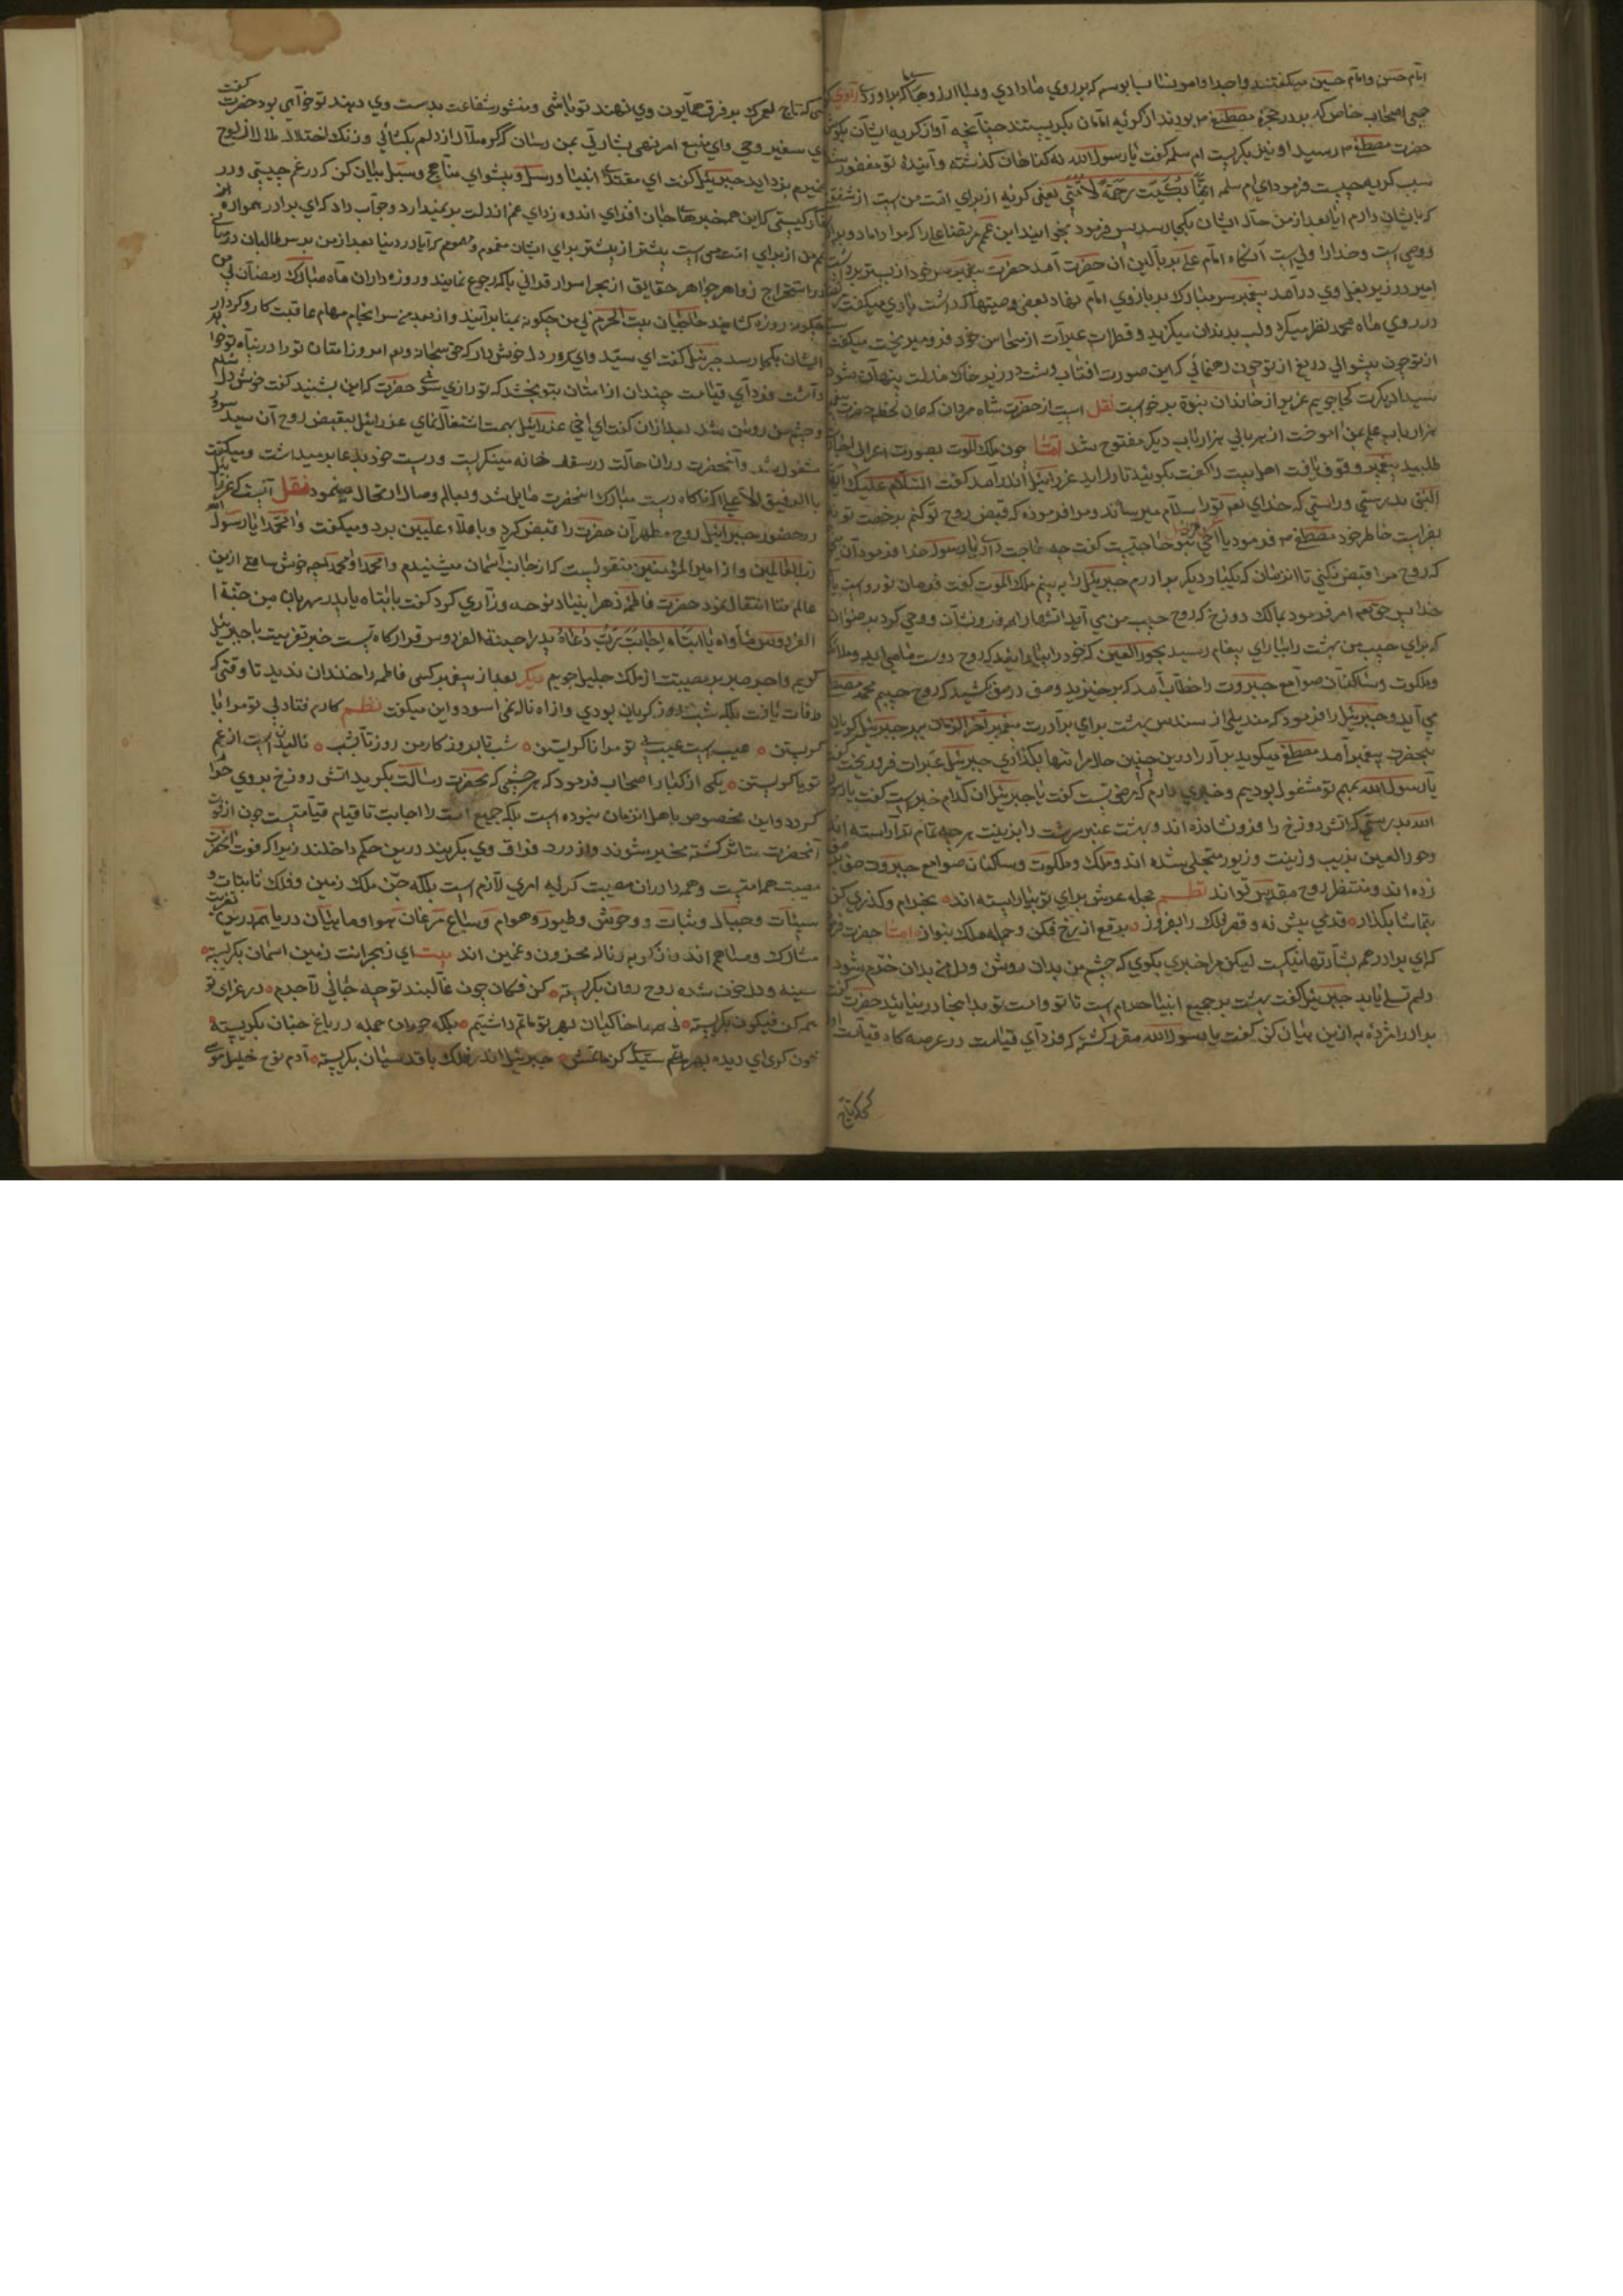 امام حسن و امام حسین میگفتند واجدا واما بوسه که بر روی ما دادی و بسا ارزوها که براوردی راوی
جمعی اصحاب خاص که بر در حجره مصطفی م بودند از گریه امامان بگریستند چنانچه آواز گریه ایشان بگوش
حضرت مصطفی م رسید او نیز بگریست ام سلمه گفت یا رسول الله نه گناهان گذشته و آینده تو مغفور
سبب گریه چیست فرمود ای ام سلمه انما بکیت رحمة لامتی یعنی گریه از برای امت من است از شفقتی
که بایشان دارم ایا بعد از من حال ایشان بکجا رسد پس فرمود بخوانید ابن عمم مرتضا علی را که مرا داماد و برادر
ووصی است و خدا را ولی است آنگاه امام علی بر بالین ان حضرت آمد حضرت پیغمبر سر خود از بستر برداشت
امیر در زیر بغل وی درآمد پیغمبر سر مبارک بر بازوی امام نهاد بعضی وصیتها که داشت باوی میگفت
در روی ماه محمد نظر میکرد و لب بدندان میگزید و قطرات عبرات از سحاب خود فرو میریخت میگفت
از تو چون پیشوای دریغ از تو چون رهنمائی که این صورت افتاب وشت در زیر خاک مذلت پنهان شود
سید دیگرت کجا جویم عزیز از خاندان نبوة برخواست نقل است از حضرت شاه مردان که همان لحظه حضرت
هزار باب علم بمن اموخت از هر بابی هزار باب دیگر مفتوح شد امتا چون ملک الموت بصورت اعرابی
طلبید پیغمبر وقوف یافت اهل بیت را گفت بگوئید تا دراید عزرائیل اندرآمد گفت السلام علیک ایها
النبی بدرستی و راستی که خدای تعم تو را سلام میرساند و مرا فرموده که قبض روح تو کنم برخصت تو
بفراست خاطر خود مصطفی م فرمود یا اخی حاجتیست گفت چه حاجت داری یا رسول خدا فرمود آن
که روح مرا قبض نکنی تا انزمان که یکبار دیگر برادرم جبرئیل را به بینم ملک الموت گفت فرمان تو رواست
خدا پس حق تعم امر فرمود بمالک دوزخ که روح حبیب من می آید اتشها را فرو نشان و وحی کرد برضوان
که برای حبیب من بهشت را بیارای پیغام رسید بحور العین که خود را بیارایید که روح دوست ما می اید و ملائکه
وملکوت و ساکنان صوامع جبروت را خطاب آمد که برخیزید وصف در صف کشید که روح حبیبم محمد مصطفی
می آید و جبرئیل را فرمود که مندیلی از سندس بهشت برای برادرت پیغمبر آخر الزمان ببر جبرئیل گریان
بحضرت پیغمبر آمد مصطفی میگوید برادر در چنین حال مرا تنها بگذاری جبرئیل عبرات فرو ریخت گفت
یا رسول الله بمهم تو مشغول بودیم و خبری دارم که مرضی تست گفت یا جبرئیل ان کدام خبر است گفت یا رسول
الله بدرستی که اتش دوزخ را فرو نشانده اند و بهشت عنبر سرشت را بزینت هر چه تمام تر آراسته اند
وحور العین بزیب و زینت و زیور متجلی شده اند و ملک و ملکوت و ساکنان صوامع جبروت صف بر صف
زده اند و منتظر روح مقدس تو اند نظم حجله عرش برای تو بیاراسته اند بخرام و گذری کن
بتماشا بگذار قدمی پیش نه و قصر فلک را بفروز برقع از رخ فکن و جمله ملک بنواز امتا حضرت
که ای برادر همه بشارتها نیکست لیکن مرا خبری بگوی که چشم من بدان روشن و دل من بدان خرم شود
دلم تسلی یابد جبرئیل گفت بهشت بر جمیع انبیا حرام است تا تو و امت تو بدانجا در نیایند حضرت گفت
برادر مژدهٔ به ازین بیان کن گفت یا رسول الله مقرر گشته که فردای قیامت در عرصه گاه قیامت اول
کسی که تاج لعمرک بر فرق همایون وی نهند تو باشی و منشور شفاعت بدست وی دهند تو خواهی بود حضرت گفت
ای سفیر وحی و ای منبع امر نهی بشارتی بمن رسان که گره ملال از دلم بگشائی و زنگ اختلال ملال از لوح
ضمیرم بزداید جبرئیل گفت ای مقتدای انبیا و رسل و پیشوای مناهج و سبل بیان کن که در غم چیستی و در
فکر کیستی که این همه خبرهای جان افزای اندوه زدای غم از دلت بر نمیدارد وجواب داد که ای برادر همواره
غم من از برای امت من است پیشتر از بیشتر برای ایشان مغموم و مهموم که آیا در دنیا بعد از من مدرس طالبان
در استخراج زواهر جواهر حقایق از بحر اسرار قرانی بکه رجوع نمایند و روزه داران ماه مبارک رمضان بی من
چگونه روزه گشایند حاجیان بیت الحرام بی من چگونه بمنا برآیند و از بعد من سرانجام مهام عاقبت کار و کردار
ایشان بکجا رسد جبرئیل گفت ای سید و ای سرور دل خوش دار که حق سبحانه و تعم امروز امتان تو را در پناه تو خواهد
داشت فردای قیامت چندان از امتان بتو بخشد که تو راضی شوی حضرت که این بشنید گفت خوش دل شدم
وچشم من روشن شد بعد از ان گفت ای اخی عزرائیل بمهمت اشتغال نمای عزرائیل بقبض روح آن سید سرور
مشغول شد و آنحضرت در ان حالت در سقف خانه مینگریست و دست خود بدعا بر میداشت و میگفت
یا الرفیق الاعلی که ناگاه دست مبارک انحضرت مایل شد و بعالم وصال ارتحال مینمود نقل آنست که عزرائیل
در حضور جبرائیل روح مطهر آن حضرت را قبض کرد و باملاء علیین برد و میگفت وا محمدا یا رسول الله
رب العالمین و از امیر المؤمنین منقولست که از جانب آسمان میشنیدم وا محمدا وا محمدا
عالم فنا انتقال نمود حضرت فاطمه زهرا بنیاد نوحه و زاری کرد گفت یا ابتاه یا پدر مهربان من جنة
الفردوس مأواه یا ابتاه اجابت رب دعاه پدرا جنة الفردوس قرارگاه تست خبر تعزیت با جبرئیل
گویم واجر صبر بر مصیبتت از ملک جلیل جویم دیگر بعد از پیغمبر کسی فاطمه را خندان ندید تا وقتی که
وفات یافت بلکه شب و روز گریان بودی و از اه ناله نمی اسود و این میگفت نظم کارم فتاد بی تو مرا با
گریستن عیب است عیب بی تو مرا نا گریستن شب تا بروز کار من روز تا بشب نالیدن است از غم
تو یا گریستن یکی از کبار اصحاب فرمود که هر چشمی که بحضرت رسالت بگرید اتش دوزخ بر وی حرام
گردد و این مخصوص باهل انزمان نبوده است بلکه جمیع امت را اجابت تا قیام قیامتست چون از فوت
آنحضرت متاثر گشته متحیر شوند و از درد فراق وی بگریند درین حکم داخلند زیرا که فوت آنحضرت
مصیبت همه امتست وهمه را در ان مصیبت گریه امری لازم است بلکه جن ملک زمین و فلک نابتات و
و جبال و نبات و وحوش و طیور و هوام و سباع مرغان هوا و ماهیان دریا همه درین تعزیت
مشارک و مساهم اند و در گریه و ناله محزون و غمین اند بیت ای ز هجرانت زمین اسمان بگریسته
سینه و دل خون شده روح روان بگریسته کن فکان چون قالبند تو چه جانی لاجرم در عزای تو
همه کن فیکون بگریسته نی همه ما خاکیان بهر تو ماتم داشتیم بلکه حوران جمله در باغ جنان بگریسته
خون گری ای دیده بهر ماتم جبرئیل اندر فلک با قدسیان بگریسته آدم نوح خلیل موسی